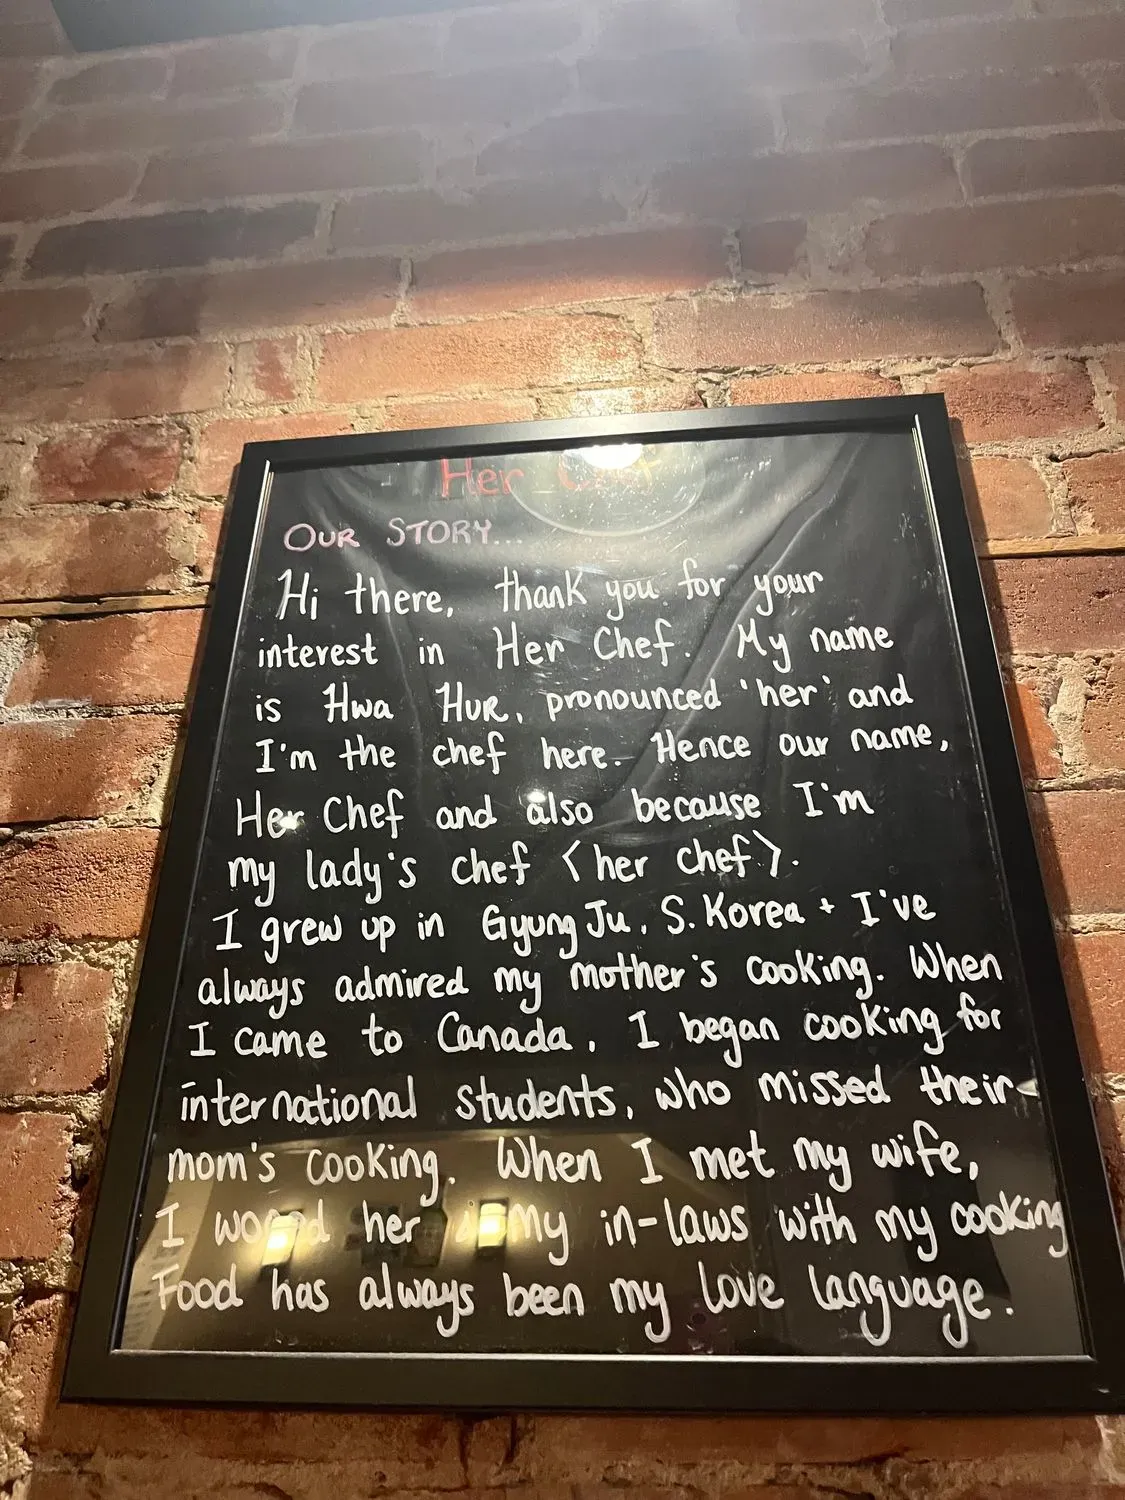 Her
OUR STORY...
Hi there, thank you for your
interest in Her Chef. My name
is Hwa HUR, pronounced 'her' and
I'm the chef here. Hence our name,
Her Chef and also because I'm
my lady's chef <her chef>.
I grew up in GyungJu, S. Korea + I've
always admired my mother's cooking. When
I came to Canada, I began cooking for
international students, who missed their
mom's cooking. When I met my wife,
I her my in-laws with my cooking
Food has always been my love language.